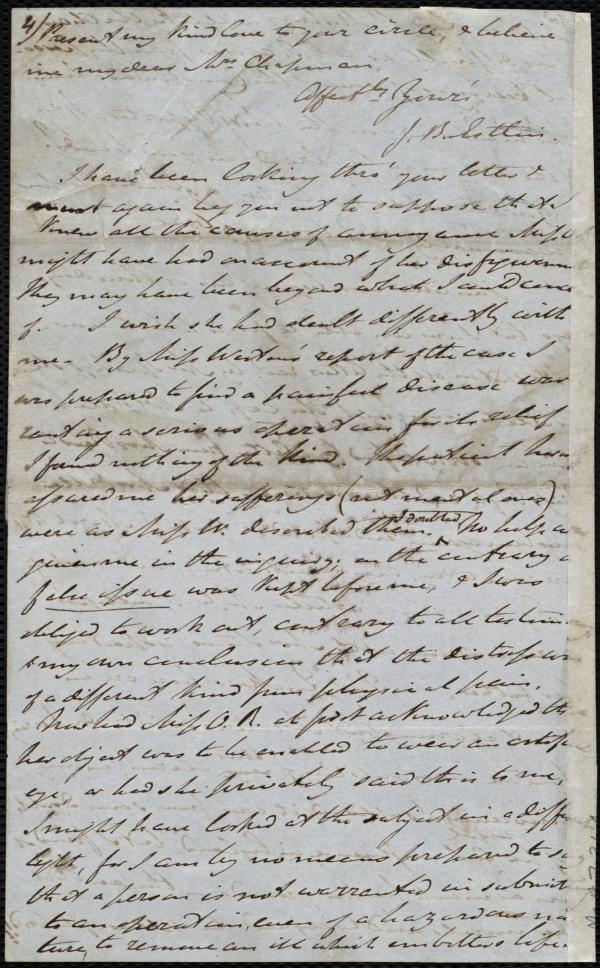 4/ Present my kind love to your circle, & believe
me my dear Mrs Chapman
Affectly Yours
J. B. Estlin.
I have been looking thro' your letter &
must again beg you not to suppose that I
knew all the causes of annoyance Miss
might have had on account of her disfigurem
They may have been beyond what I could conce
of. I wish she had dealt differently with
me. By Miss Weston's report of the case I
was prepared to find a painful disease war
ranting a serious operation for its relief
I found nothing of the kind. The patient hers
assured me her sufferings (not mental ones)
were as Miss W. described them. I doubted No help w
given me in the inquiry; on the contrary a
false issue was kept before me, & I was
obliged to work out, contrary to all testim
& my own conclusion that the distress wa
of a different kind from physical pain.
Now had Miss O. R. at first acknowledged th
her object was to be enabled to wear an artif
eye, or had she privately said this to me,
I might have looked at the subject in a diffe
light, for I am by no means prepared to s
that a person is not warranted in submit
to an operation, even of a hazardous na
ture, to remove an ill which embitters life.